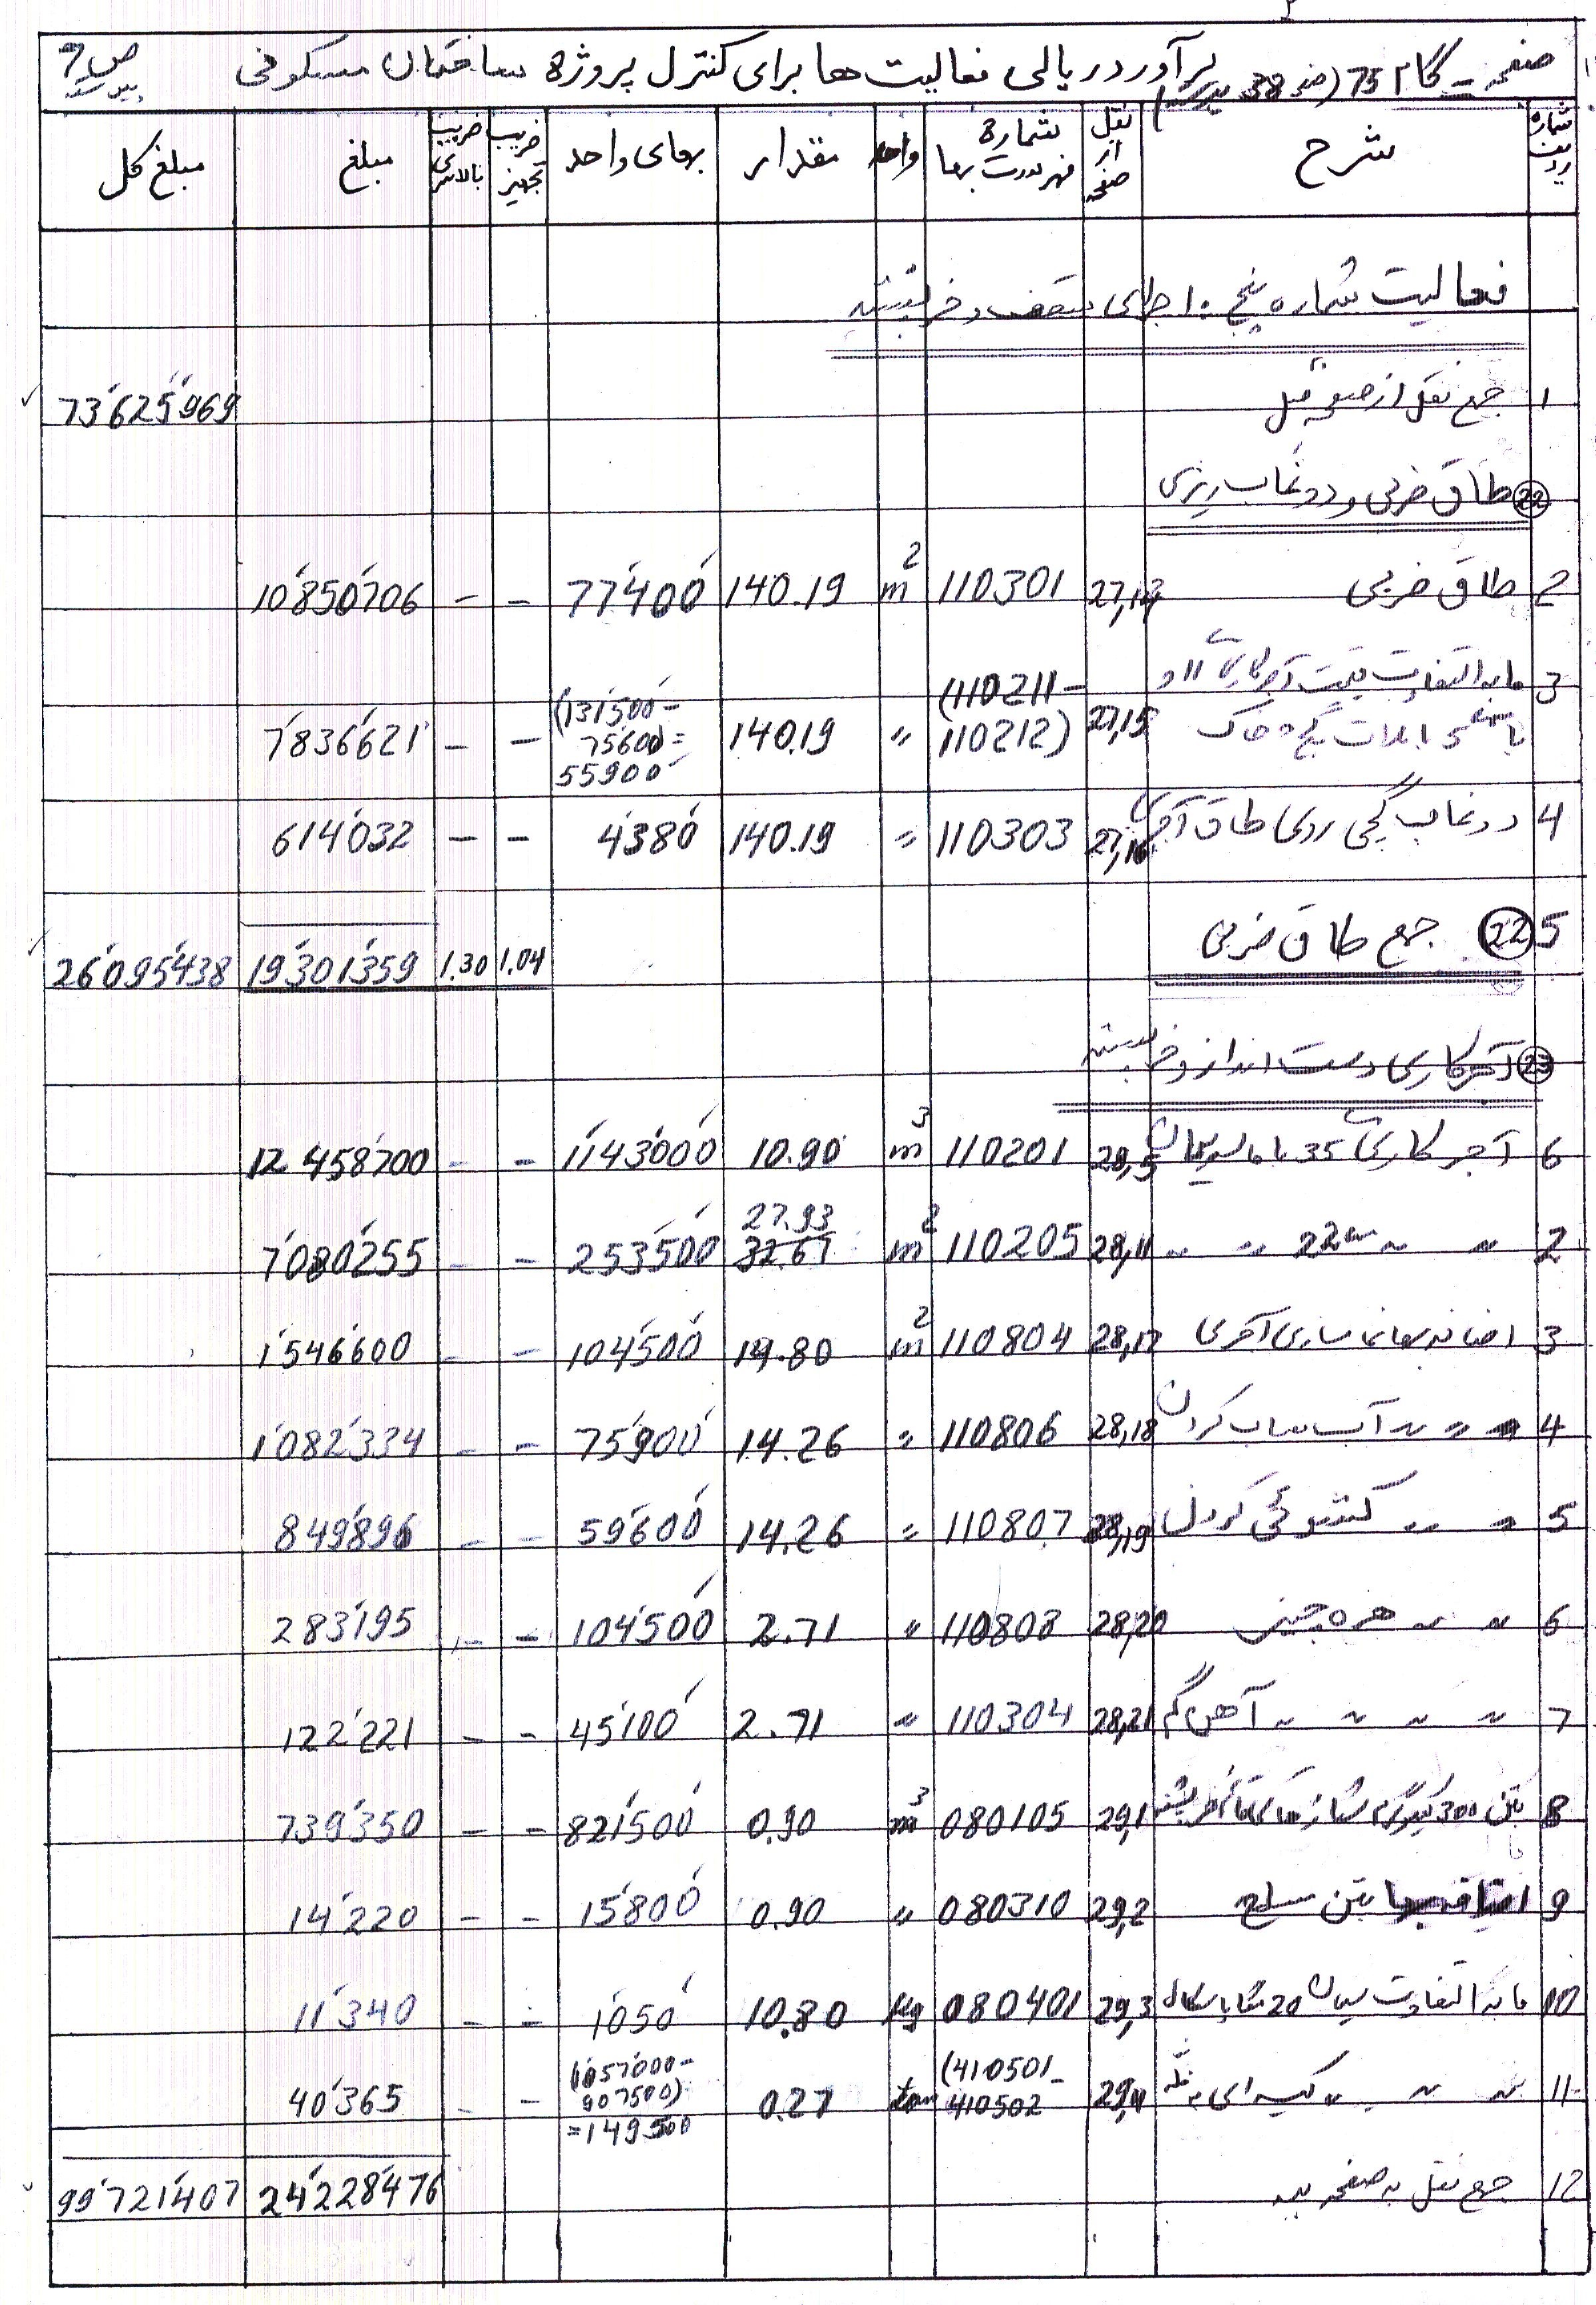 صفحه - گام 75 (صفحه 38 برآورد ریالی فعالیت ها برای کنترل پروژه ساختمان مسکونی ص 9
شماره ردیف شرح نقل از صفحه شماره فهرست بها واحد مقدار بهای واحد ضریب تجهیز ضریب بالاسری مبلغ مبلغ کل
فعالیت شماره پنج . اجرای سقف و خرپشته
1 جمع نقل از صفحه قبل 73'625'969
22 طاق ضربی و دوغاب ریزی
2 طاق ضربی 27,14 110301 m2 140.19 77'400 - - 10'850'706
3 مابه التفاوت قیمت آجرکاری 11 و
با ملات گچ و خاک 27,15 (110211-110212) " 140.19 (131'500-75600)=55900 - - 7'836'621
4 دوغاب گچی روی طاق آجری 27,16 110303 " 140.19 4'380 - - 614'032
5 22 جمع طاق ضربی 1.04 1.30 19'301'359 26'095'438
23 آجرکاری دست انداز و خرپشته
6 آجرکاری 35 با ماسه سیمان 28,5 110201 m3 10.90 1'143'000 - - 12'458'700
2 " " 22 " " " 28,11 110205 m2 27.93 32.67 253'500 - - 7'080'255
3 اضافه بها نماسازی آجری 28,17 110804 m2 14.80 104'500 - - 1'546'600
4 " " " آب ساب کردن 28,18 110806 " 14.26 75'900 - - 1'082'334
5 " " کشوئی کردن 28,19 110807 " 14.26 59'600 - - 849'896
6 " " " هره چینی 28,20 110803 " 2.71 104'500 - - 283'195
7 " " " " آهن گم 28,21 110304 " 2.71 45'100 - - 122'221
8 بتن 300 کیلوگرم 29,1 080105 m3 0.90 821'500 - - 739'350
9 اضافه بها بتن مسلح 29,2 080310 " 0.90 15'800 - - 14'220
10 مابه التفاوت سیمان 29,3 080401 kg 10.80 1'050 - - 11'340
11 " " " " کیسه ای به فله 29,4 (410501-410502 ton 0.27 (1'057'000-907500)=149500 - - 40'365
12 جمع نقل به صفحه بعد 24'228'476 99'721'407